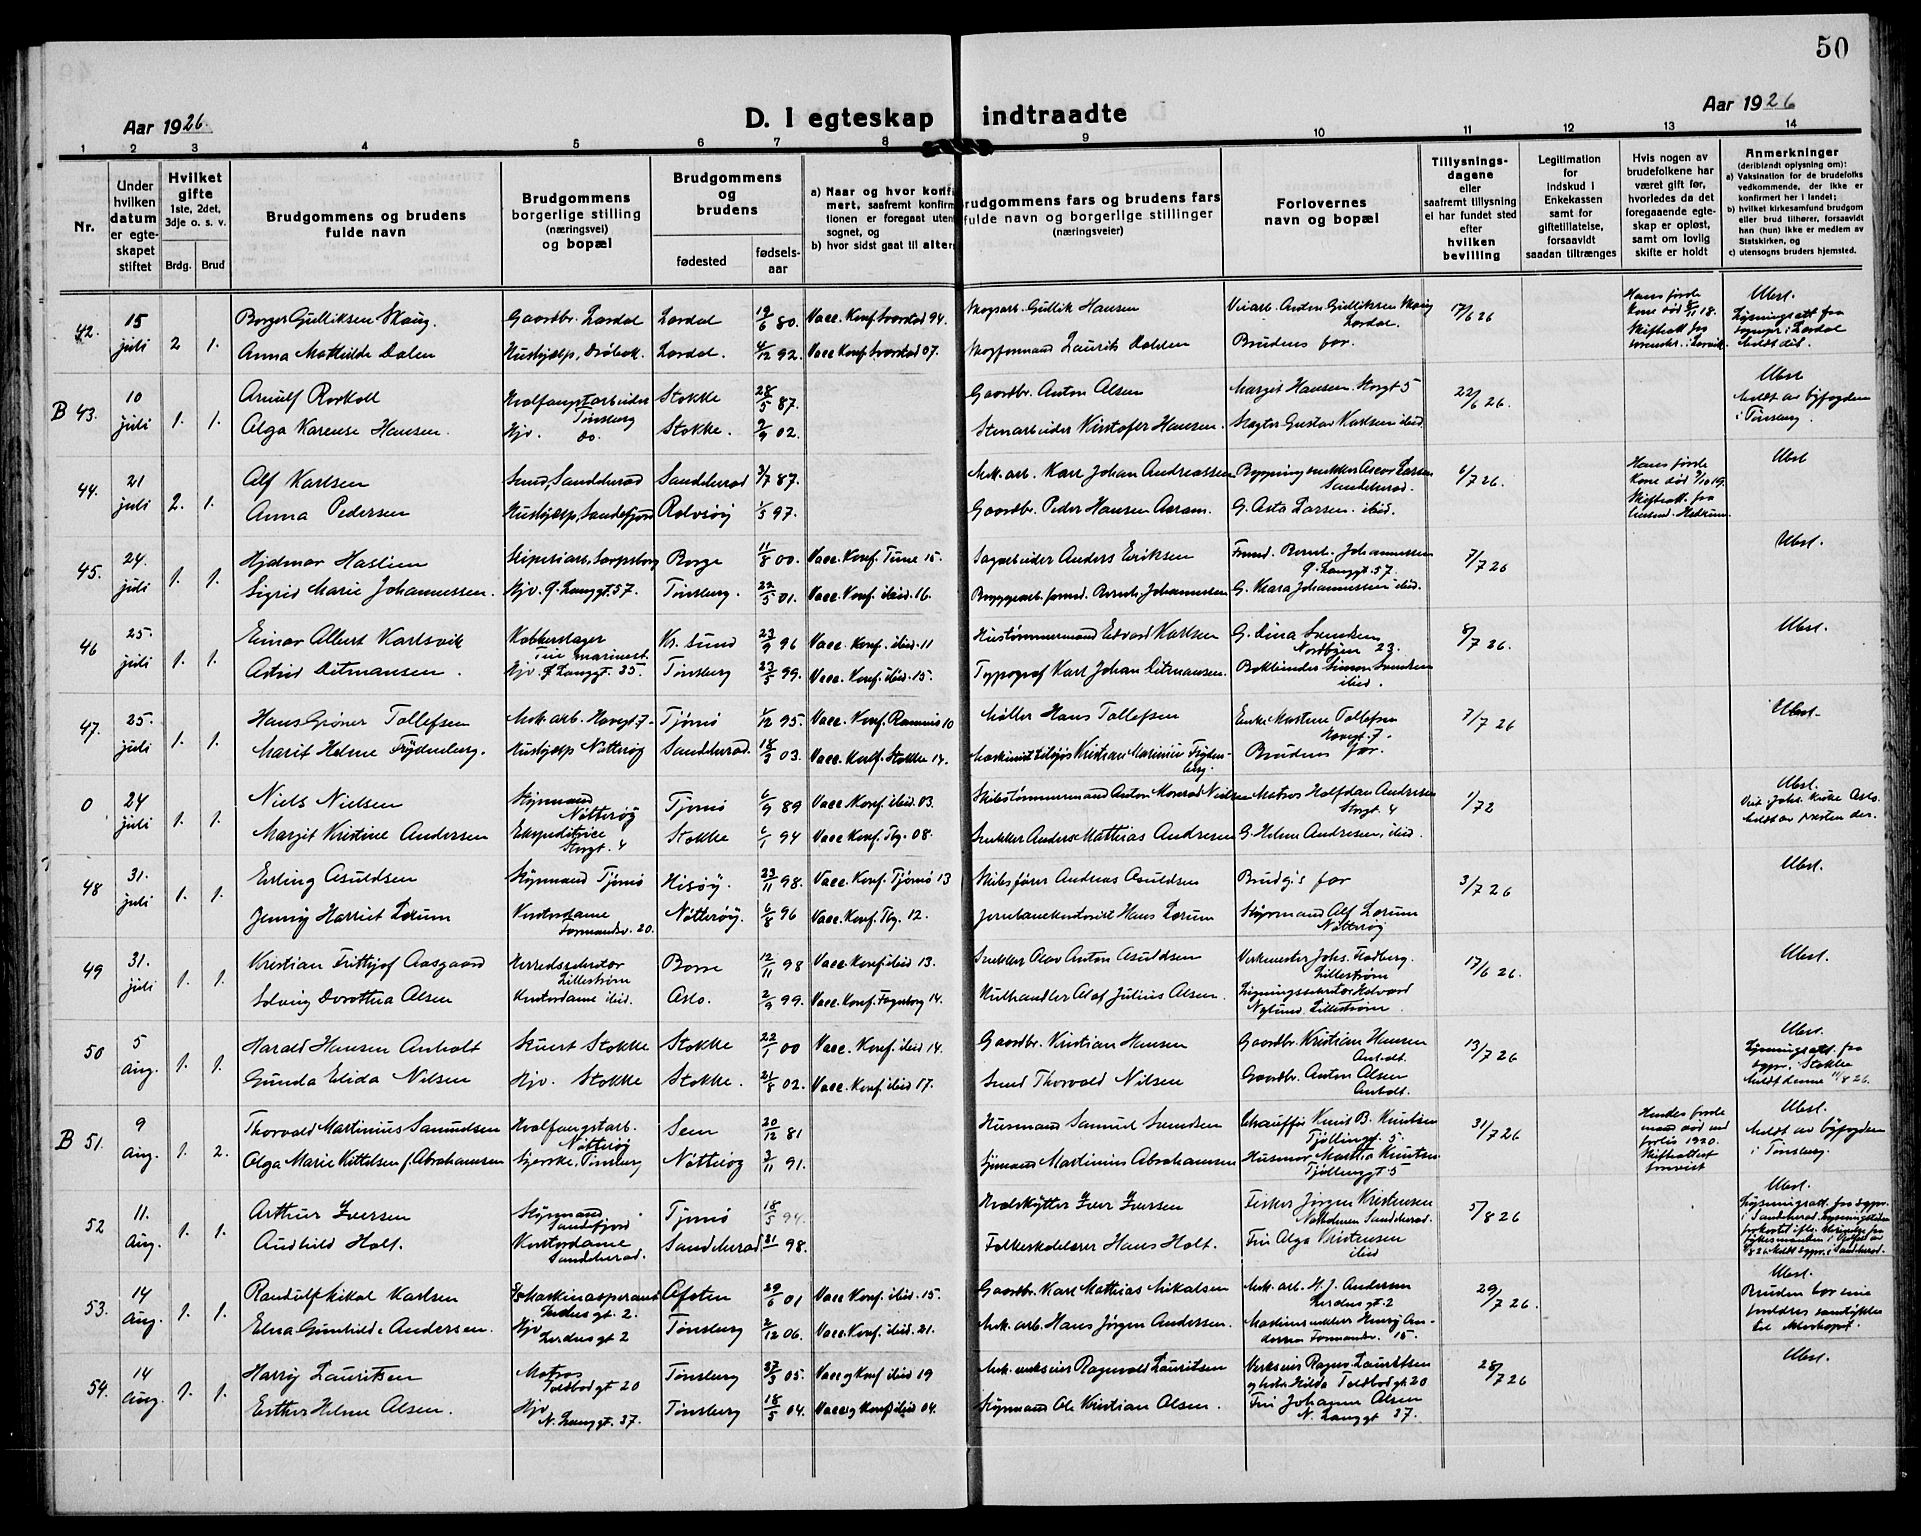 50
Aar 1926.
D. I egteskap indtraadte
Aar 1926
1 2 3 4 5 6 7 8 9 10 11 12 13 14
Nr.
Under hvilken datum er egteskapet stiftet
Hvilket gifte 1ste, 2det, 3dje o. s. v.
Brdg. Brud
Brudgommens og brudens fulde navn
Brudgommens borgerlige stilling (næringsvei) og bopæl
Brudgommens og brudens
fødested
fødselsaar
a) Naar og hvor konfir
mert, saafremt konfirm
tionen er foregaat uten
sognet, og
b) hvor sidst gaat til alters
Brudgommens fars og brudens fars
fulde navn og borgerlige stillinger
(næringsveier)
Forlovernes navn og bopæl
Tillysnings-dagene eller saafremt tillysning ei har fundet sted efter hvilken bevilling
Legitimation for indskud i Enkekassen samt for giftetillatelse, forsaavidt saadan tiltrænges
Hvis nogen av brudefolkene har været gift før, hvorledes da det foregaaende egteskap er opløst, samt om lovlig skifte er holdt
Anmerkninger
(deriblandt oplysning om):
a) Vaksination for de brudefolks vedkommende, der ikke er konfirmert her i landet;
b) hvilket kirkesamfund brudgom eller brud tilhører, forsaavidt han (hun) ikke er medlem av Statskirken, og
c) utensogns bruders hjemsted.
42. 15 juli 2 1. Borger Gulliksen Skaug. Gaardbr. Lardal Lardal 19/6 80. Vacc. Konf. Svarstad 94. Skogsarb. Gullik Hansen 17/6 26 Ubst.
Anna Mathilde Dalen Hushjælp, Drøbak. Lardal. 4/12 92. Vacc Konf. Svarstad 07. Skogformand Laurits Dalen Brudens far.
B 43. 10 juli 1. 1. Arnulf Rorkoll Hvalfangstarbeider Tønsberg Stokke 28/5 87. Gaardbr. Anton Olsen Margit Hansen Storgt 5 22/6 26. Ubst Meldt av byfogden i Tønsberg.
Olga Karense Hansen. Hjv. do. Stokke. 9/9 02. Stenarbeider Kristofer Hansen. Slagter Gustav Karlsen ibid.
44. 21 juli 2. 1. Alf Karlsen Smed, Sandeherad Sandeherad 3/7 87. Mek. arb. Karl Johan Andreassen Sandeherad. 6/7 26. Hans førde Kone død 9/10 19. Ubst
Anna Pedersen Hushjælp, Sandefjord Rolvsøy 1/5 97. Gaardbr. Peder Hansen Aaram. G. Asta Larsen. ibid.
45. 24. juli 1. 1. Hjalmar Haslien Sliperiarb., Sarpsborg Borge 11/8 00. Vacc. Konf. Tune 15. Sagarbeider Anders Eriksen Formd. Bernh. Johannessen Ø. Langgt. 57. 7/7 26 Ubst.
Sigrid Marie Johannessen. Hjv. Ø. Langgt. 57. Tønsberg. 22/5 01. Vacc. Konf. ibid. 16. Bryggearb. formd. Bernh. Johannessen G. Klara Johannessen ibid.
46 25. juli 1. 1. Einar Albert Karlsvik Kobberslager Kr. sund 23/9 96 Vacc. Konf. ibid. 11 Hustømmermand Edvard Karlsen G. Dina Svendsen Nordbyen 23. 8/7 26. Ubst.
Astrid Ditmansen. Hjv. Ø Langgt. 35. Tønsberg 23/5 99. Vacc. Konf. ibid. 15. Typograf Karl Johan Ditmansen. Bokbinder Simon Svendsen ibid.
47. 25. juli 1. 1. Hans Grøner Tollefsen Mek. arb. Havegt. 7. Tjømø 1/12 95. Vacc. Konf. Ramnes 10 Møller Hans Tollefsen Enke Martine Tollefsen Havegt. 7. 7/7 26 Ubst.
Marit Helene Frydenberg. Hushjælp Nøtterøy Sandeherad. 18/3 03. Vacc. Konf. Stokke 17. Kristian Marinius Frydenberg. Brudens far.
0 24 juli 1. 1. Niels Nielsen Styrmand Nøtterøy Tjømø 6/9 89 Vacc Konf. ibid. 03. Skibstømmermand Anton Konrad Nielsen Matros Halfdan Andresen Storgt. 4 1/7 2 Ubst. Viet Johs. Kirke Oslo.
Margit Kristine Andersen Ekspeditrice Storgt. 4 Stokke 6/1 94 Vacc. Konf. Tbg. 08. Snekker Anders Mathias Andresen G. Helene Andresen, ibid.
48 31. juli 1. 1. Erling Asuldsen Styrmand Tjømø Hisøy. 23/11 98. Vacc. Konf. Tjømø 13 Skibsfører Andreas Asuldsen Brudg's far 3/7 26 Ubst.
Jenny Harriet Lorum Kontordame Farmandsv. 20. Nøtterøy. 6/8 96 Vacc Konf. Tbg. 12. Jernbanekontorist Hans Lorum Styrmand Alf Lorum Nøtterøy
49 31. juli 1. 1. Kristian Frithjof Aasgaard Herredssekretær Lillestrøm Borre 12/11 98 Vacc. Konf ibid 13. Snekker Olav Anton Asuldsen Verkmester Johs. Fladberg. Lillestrøm 17/6 26. Ubst.
Solveig Dorothea Olsen Kontordame ibid. Oslo. 2/9 99. Vacc. Konf. Fagerborg 14. Kulhandler Olaf Julius Olsen. Ligningssekretær Halvard Nylund Lillestrøm.
50 5 Aug. 1. 1. Harald Hansen Anholt Skuert Stokke Stokke 22/1 00 Vacc. Konf. ibid 14. Gaardbr. Kristian Hansen Gaardbr. Kristian Hansen Anholt. 13/7 26 Ubst. Lysningsatt. fra sogpr. Stokke Meldt denne 11/8 26.
Gunda Elida Nilsen Hjv. Stokke Stokke. 21/8 02. Vacc Konf. ibid 17. Smed Thorvald Nilsen Gaardbr. Anton Olsen Anholt.
B 51. 9 Aug. 1. 2. Thorvald Martinius Samuelsen Hvalfangstarb. Nøtterøy Sem 20/12 81 Husmand Samuel Svendsen Chauffør Knut B. Knutsen 5. 31/7 26 Ubst. Meldt av byfogden i Tønsberg.
Olga Marie Kittelsen f. Abrahamsen Tønsberg Nøtterøy 3/11 91. Sjømand Martinius Abrahamsen Husmor Martha Knutsen
52 11. Aug. 1. 1. Arthur Iversen Styrmand Sandefjord Tjømø 18/5 94. Hvalskytter Iver Iversen Fisker Jørgen Kristensen Sandeherad. 5/8 26 Ubst.
Audhild Holt. Kontordame Sandeherad. Sandeherad 98. Folkeskolelærer Hans Holt. Frk Olga Kristensen ibid
53. 14 Aug. 1. 1. Randulf Mikal Karlsen Lerdes gt. 2. Ofoten 29/6 01 Vacc Konf. ibid. 15. Gaardbr. Karl Mathias Mikalsen Mek. arb. H. J. Andersen Lerdesgt. 2 29/7 26. Ubst. Bruden har sine foreldres samtykke til ekteskapet.
Elna Gunhilde Andersen. Hjv Lerdes gt 2 Tønsberg 2/12 06. Vacc. Konf. ibid. 21. Mek. arb. Hans Jørgen Andersen. Henry Andersen Farmandsv. 15.
54. 14 Aug. 1. 1. Harry Lauritsen Matros Toldbodgt 20 Tønsberg 05. Vacc og Konf ibid 19 Ragnvald Lauritsen Ragnv. Lauritsen Hilda Toldbodgt. 20 28/7 26 Ubst.
Esther Helene Olsen. Hjv N. Langgt. 37. Tønsberg 18/5 04. Vacc og Konf ibid 04. Styrmand Ole Kristian Olsen. Frk Johanne Olsen N. Langgt 37.